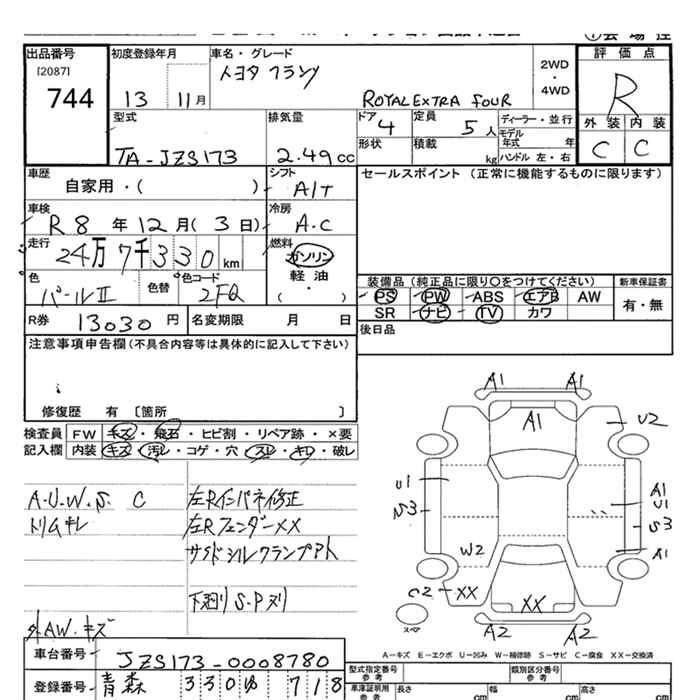 出品番号 初度登録年月 車名・グレード 評価点
[2087] トヨタ クラウン 2WD
744 ・ R
13 11月 ROYAL EXTRA FOUR 4WD
型式 排気量 ドア 4 定員 5人 ディーラー・並行 外装 内装
モデル年式 年
TA-JZS173 2.49cc 形状 積載 kg ハンドル 左・右 C C
車歴 シフト セールスポイント (正常に機能するものに限ります)
自家用・( ) A/T
車検 冷房
R8年12月(3日) A.C
走行 燃料
24万7千330km ガソリン
色 色替 色コード 軽油
パールII 2FQ ( ・ )
装備品 (純正品に限り○をつけてください) 新車保証書
PS PW ABS エアB AW 有・無
SR ナビ TV カワ
R券 13030円 名変期限 月 日 後日品
注意事項申告欄(不具合内容等は具体的に記入して下さい)
修復歴 有 [箇所 ]
検査員 FW キズ・飛石・ヒビ割・リペア跡・×要
記入欄 内装 キズ・汚レ・コゲ・穴・スレ・キレ・破レ
A.U.W.S C 左Rインパネ修正
トリムキレ 左Rフェンダー XX
サイドシルクランプアト
下廻リ S.P刈
外AW.キズ
A1 A1
A1 U2
U1 A1
U1
S3 S3
W2 A1
C2 XX XX
スペア A2 A2
A-キズ E-エクボ U-凹み W-補修跡 S-サビ C-腐食 XX-交換済
車台番号 JZS173-0008780 型式指定番号 参考 類別区分番号 参考
登録番号 青森 330 ゆ 718 車庫証明用 参考 長さ cm 幅 cm 高さ cm